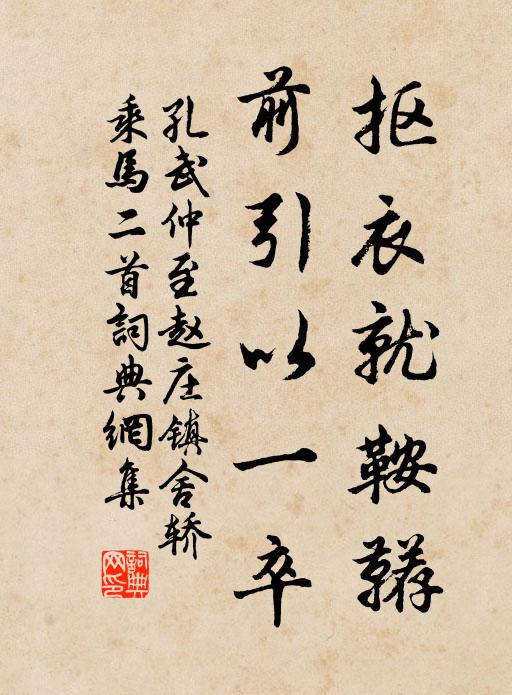 抠衣就鞍鞯
前引以一卒
孔武仲至赵庄镇舍轿
乘馬二首詞典網集
詞典
网印